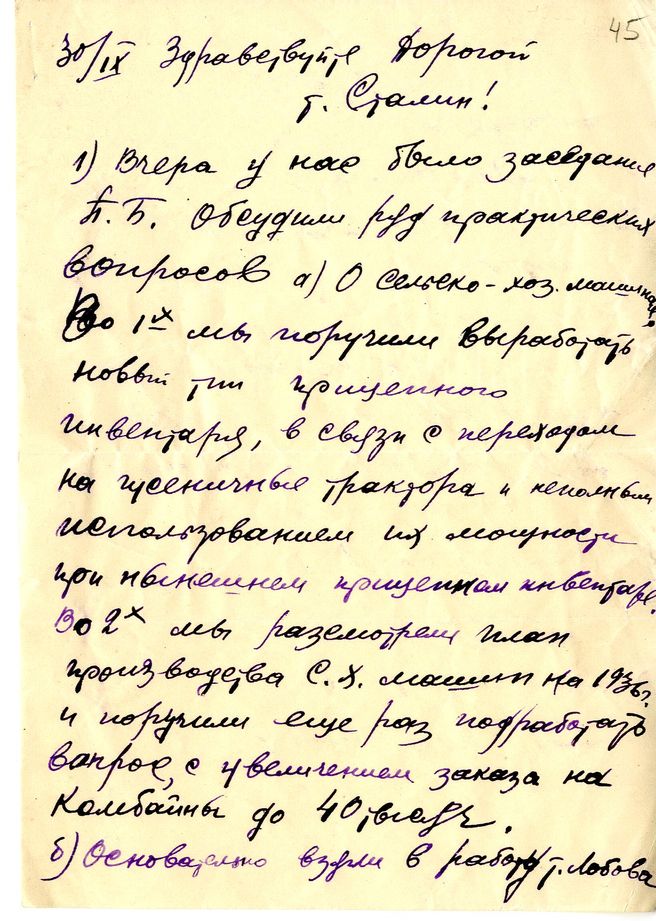 45
30/IX Здравствуйте Дорогой
т. Сталин!
1) Вчера у нас было заседание
П.Б. Обсудили ряд практических
вопросов а) О сельско-хоз. машинах,
Во 1х мы поручили выработать
новый тип прицепного
инвентаря, в связи с переходом
на гусеничные трактора и неполным
использованием их мощности
при нынешнем прицепном инвентаре.
Во 2х мы размотрели план
производства С.Х. машин на 1936г.
и поручили еще раз подработать
вопрос, с увеличением заказа на
Комбайны до 40 тысяч.
б) Основательно взяли в работу т. Лобова